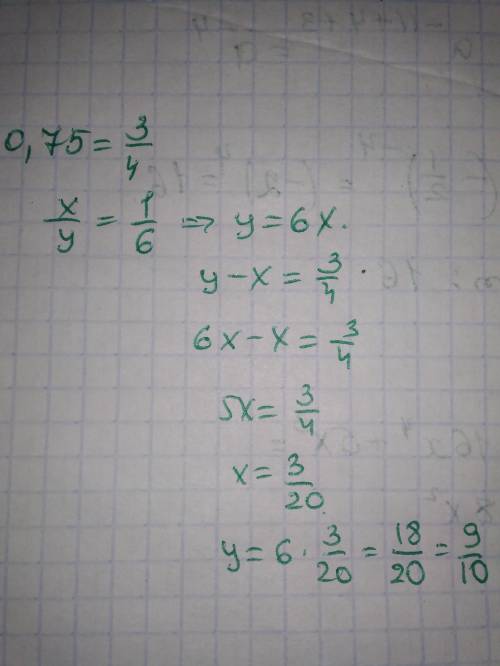 0,75 = 3/4
x/y = 1/6 => y = 6x.
y - x = 3/4
6x - x = 3/4
5x = 3/4
x = 3/20
y = 6 · 3/20 = 18/20 = 9/10